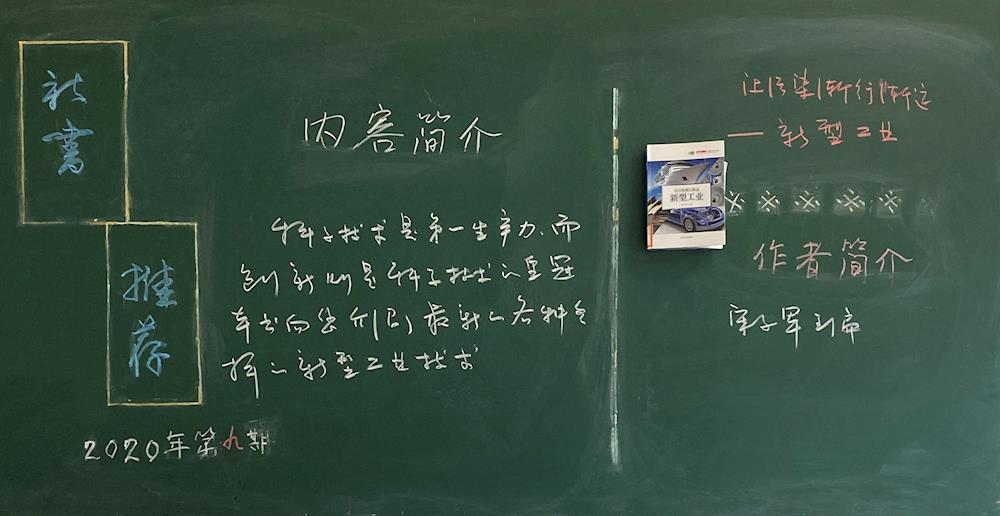 新书
推荐
2020年第九期
内容简介
科学技术是第一生产力,而
创新则是科学技术的重冠
本书向您介绍最新的各种各
样的新型工业技术
让污染渐行渐远
——新型工业
新型工业
※※※※※
作者简介
主审